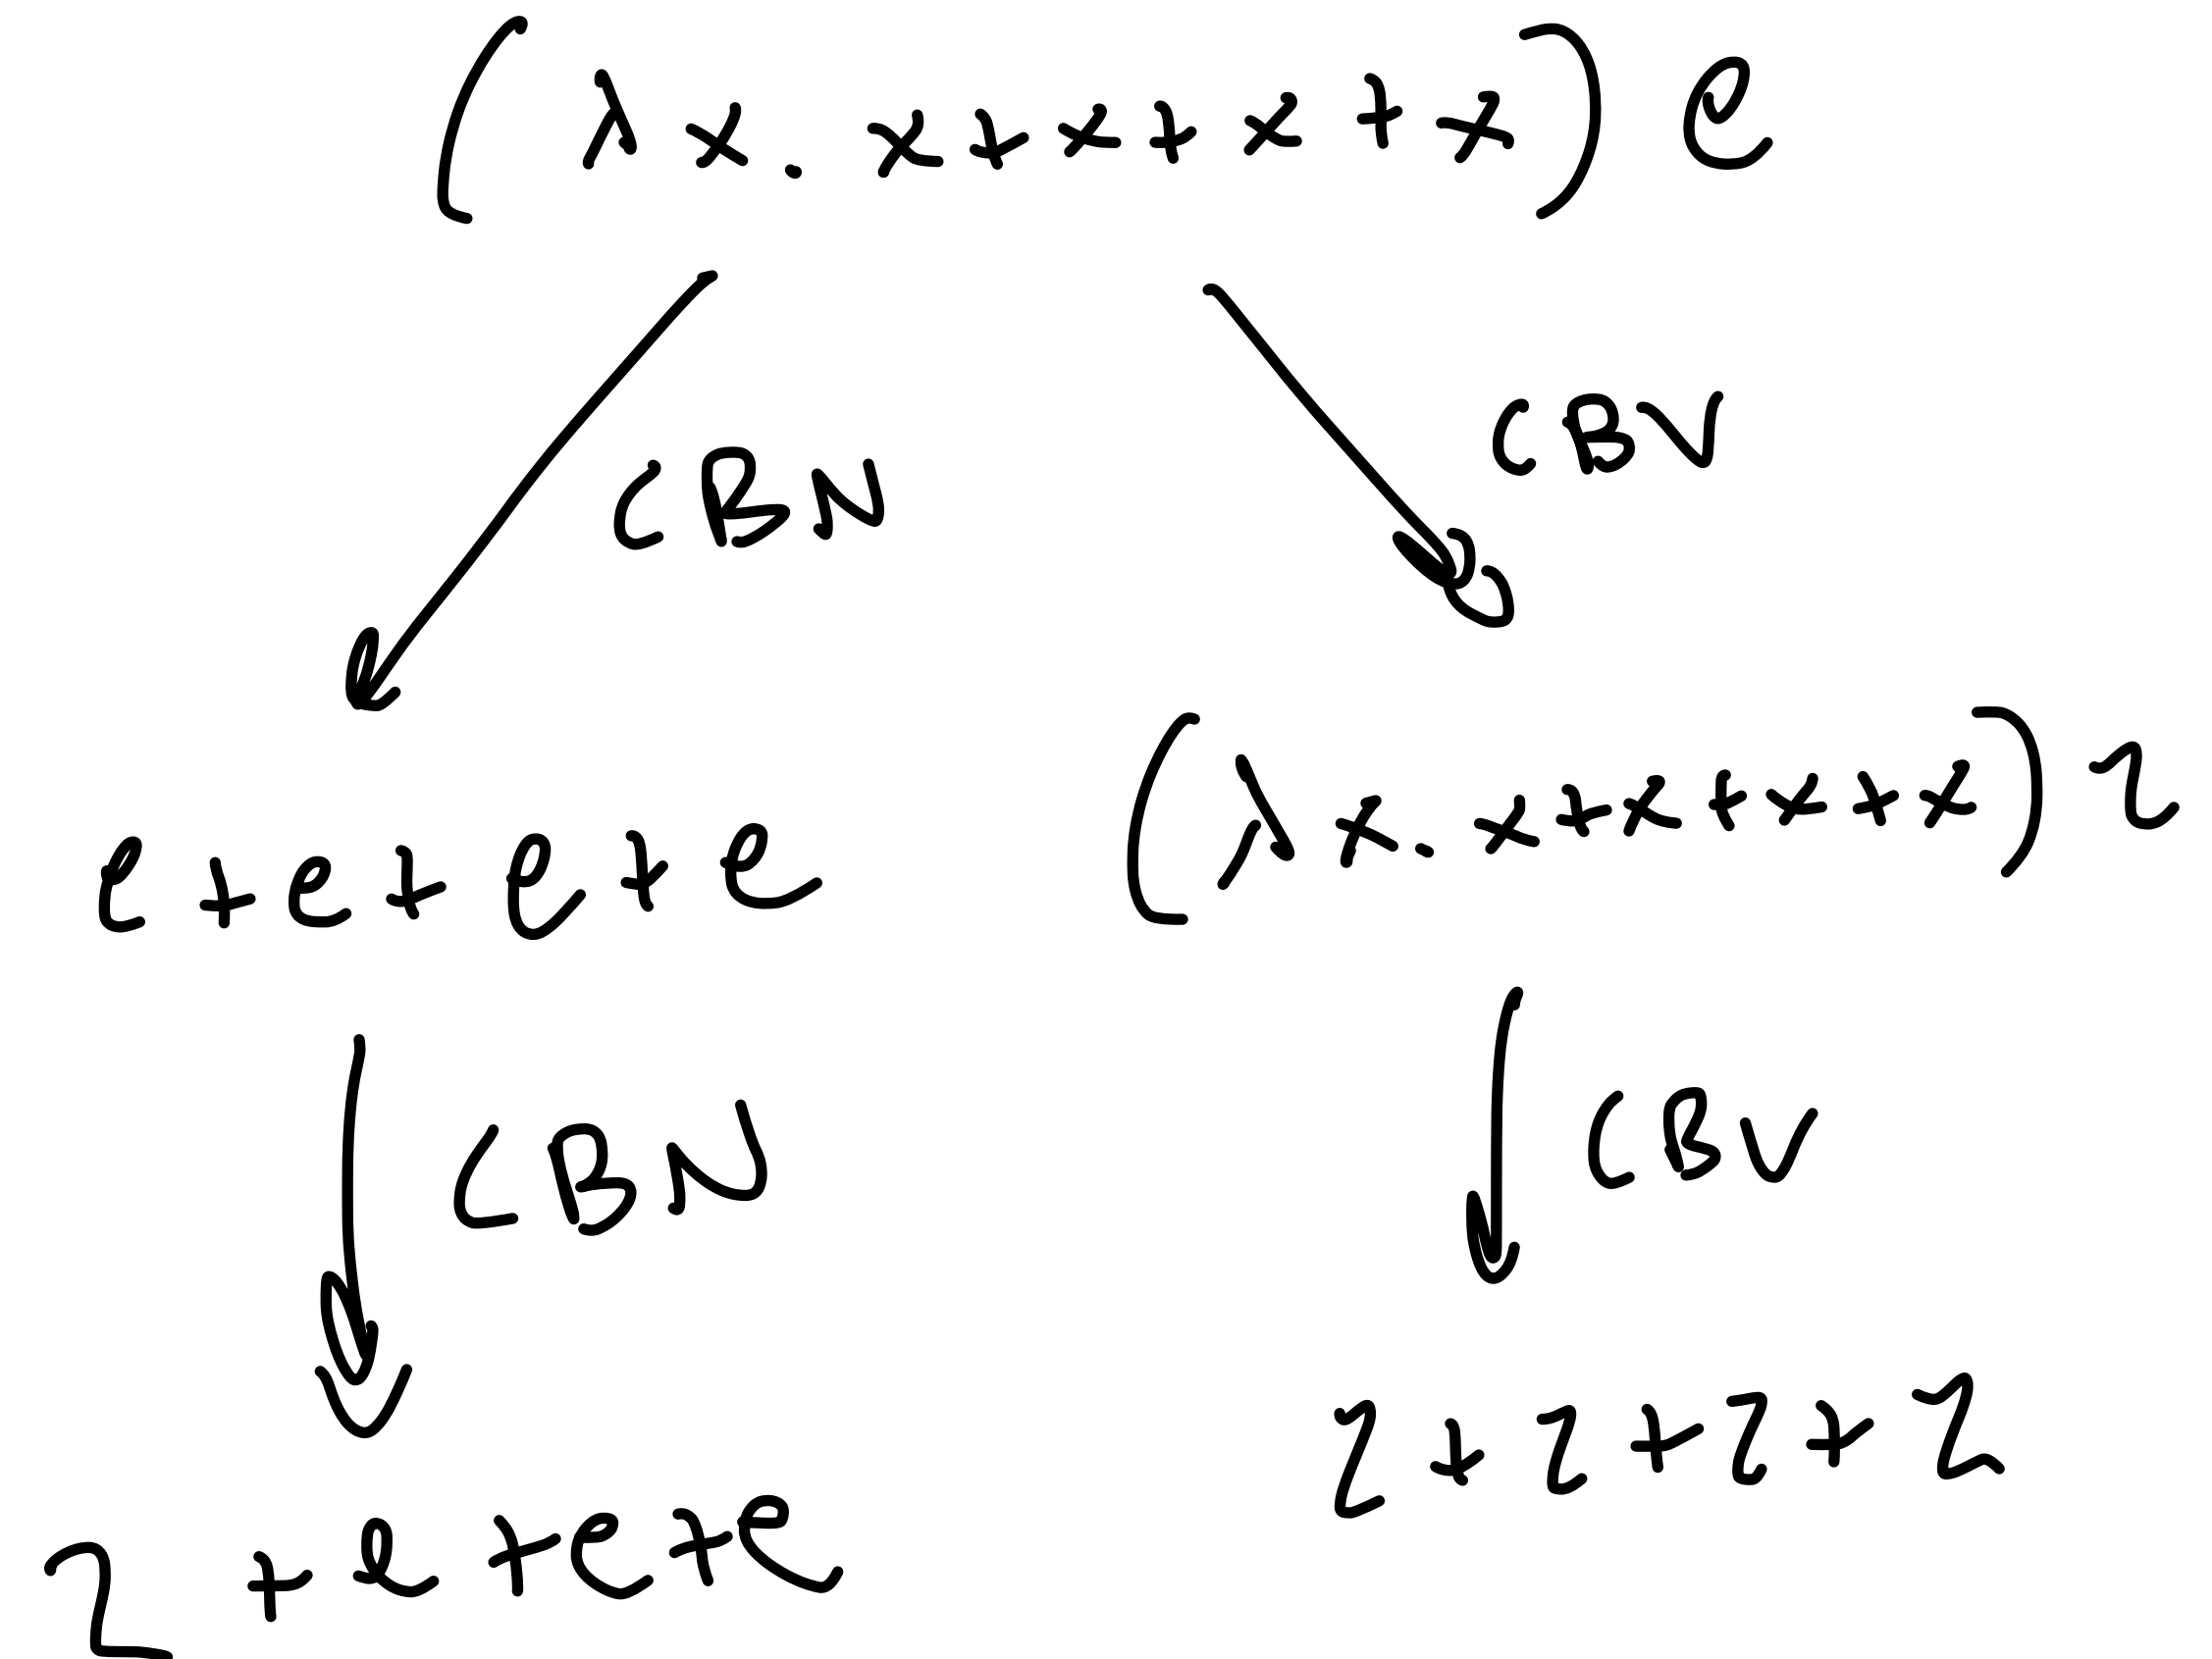 (λx. x+x+x+x) e
CBN
CBV
e+e+e+e
(λx. x+x+x+x) 2
CBN
CBV
2+2+2+2
2+e+e+e